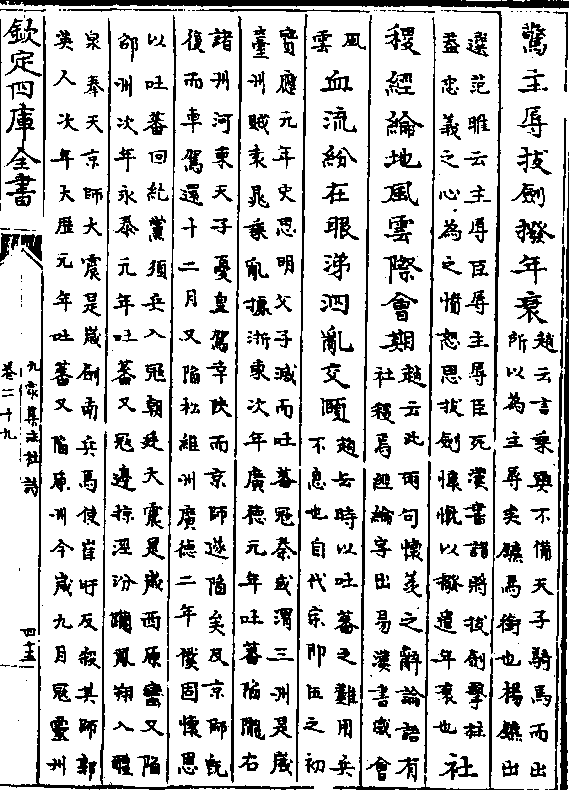 驚主辱拔劍撥年衰
趙云言乘輿不備天子騎馬而出
所以為主辱矣鑣馬銜也楊鑣出
選范睢云主辱臣辱主辱臣死漢書諸將拔劍擊柱
蓋忠義之心為之憤怒思拔劍慷慨以撥遣年衰也
社
稷經綸地風雲際會期
趙云此兩句懷羨之辭論語有
社稷焉經綸字出易漢書咸會
風
雲
血流紛在眼涕泗亂交頤
趙云時以吐蕃之難用兵
不息也自代宗即位之初
寶應元年史思明父子滅而吐蕃冦秦成渭三州是歲
臺州賊袁晁乘亂據浙東次年廣德元年吐蕃陷隴右
諸州河東天子憂皇駕幸陜而京師遂陷矣及京師旣
復而車駕還十二月又陷松維州廣德二年僕固懷恩
以吐蕃回紇黨項兵入冦朝廷大震是歲西原蠻又陷
邵州次年永泰元年吐蕃又冦邊掠涇汾躪鳳翔入醴
泉奉天京師大震是歲劍南兵馬使崔旰反殺其帥郭
英乂次年大歷元年吐蕃又陷原州今歲九月冦靈州
欽定四庫全書
九家集註杜詩
卷二十九
四十五